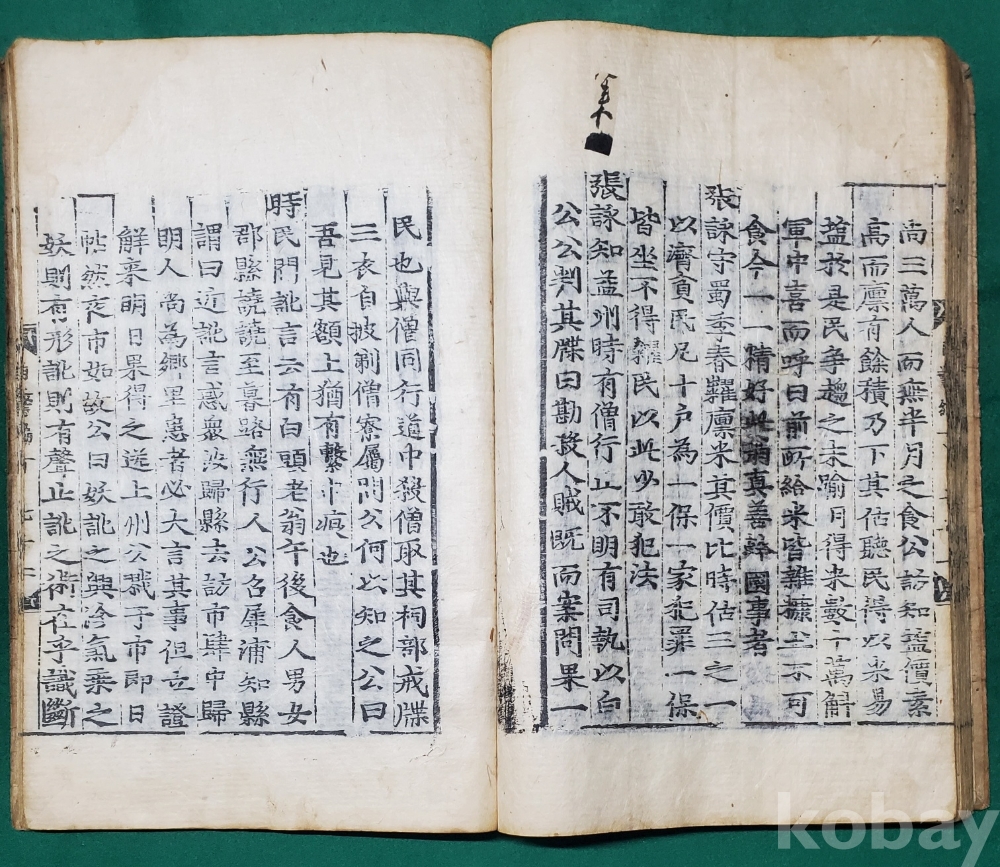 尙三萬人而無半月之食公訪知鹽價素
高而廩有餘積乃下其估聽民得以米易
塩於是民爭趨之未踰月得米數十萬斛
軍中喜而呼曰前所給米皆雜糠土不可
食今一一精好此翁真善幹國事者
張詠守蜀季春糶廩米其價比時估三之一
以濟貧民凡十戶為一保一家犯罪一保
皆坐不得糶民以此少敢犯法
張詠知益州時有僧行止不明有司執以白
公公判其牒曰勘殺人賊旣而案問果一
民也與僧同行道中殺僧取其祠部戒牒
三衣自披剃僧寮屬問公何以知之公曰
吾見其額上猶有繫巾痕也
時民間訛言云有白頭老翁午後食人男女
郡縣譊譊至暮路無行人公召犀浦知縣
謂曰近訛言惑衆汝歸縣去訪市肆中歸
明人尚為鄉里患者必大言其事但立證
解來明日果得之送上州公戮于市即日
怗然夜市如故公曰妖訛之興沴氣乗之
妖則有形訛則有聲止訛之術在乎識斷
kobay